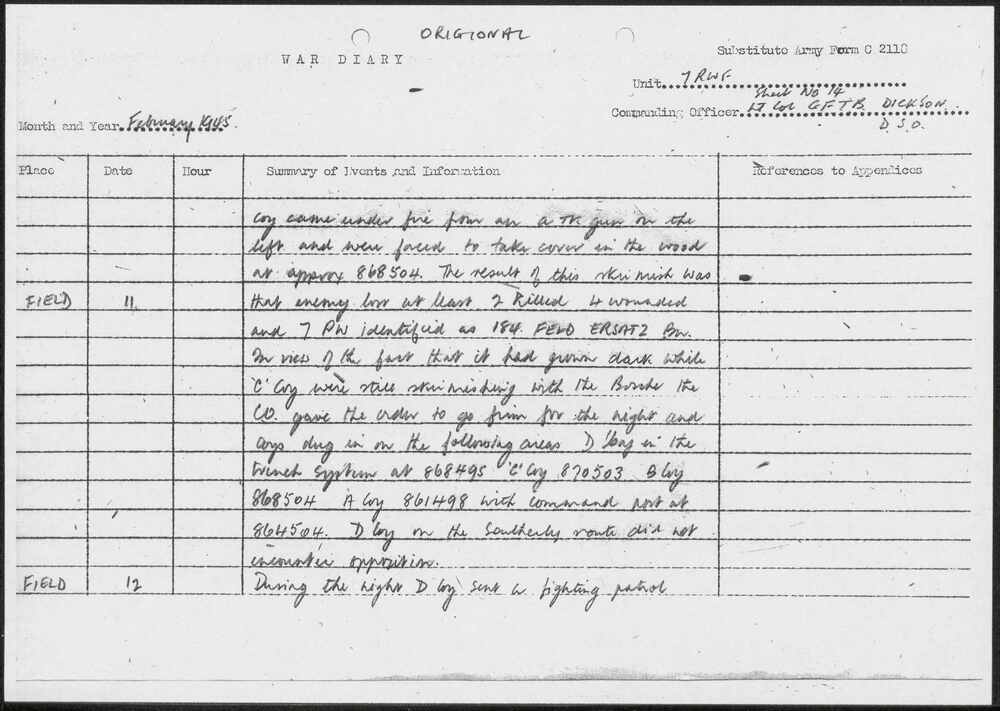 ORIGIONAL
WAR DIARY
Substitute Army Form C 2118
Unit 7 RWF
Sheet No 14
Commanding Officer Lt Col G F T B DICKSON
D.S.O.
Month and Year February 1945.
Place Date Hour Summary of Events and Information References to Appendices
Coy came under fire from an a tk gun on the
left and were forced to take cover in the wood
at approx 868504. The result of this skirmish was
FIELD 11 that enemy lost at least 2 killed 4 wounded
and 7 PW identified as 184 FELD ERSATZ Bn.
In view of the fact that it had grown dark while
'C' Coy were still skirmishing with the Bosche the
CO. gave the order to go firm for the night and
Coys dug in on the following areas D Coy in the
trench system at 868495 'C' Coy 870503 B Coy
868504 A Coy 861498 with command post at
864504. D Coy on the Southerly route did not
encounter opposition.
FIELD 12 During the night D Coy sent a fighting patrol